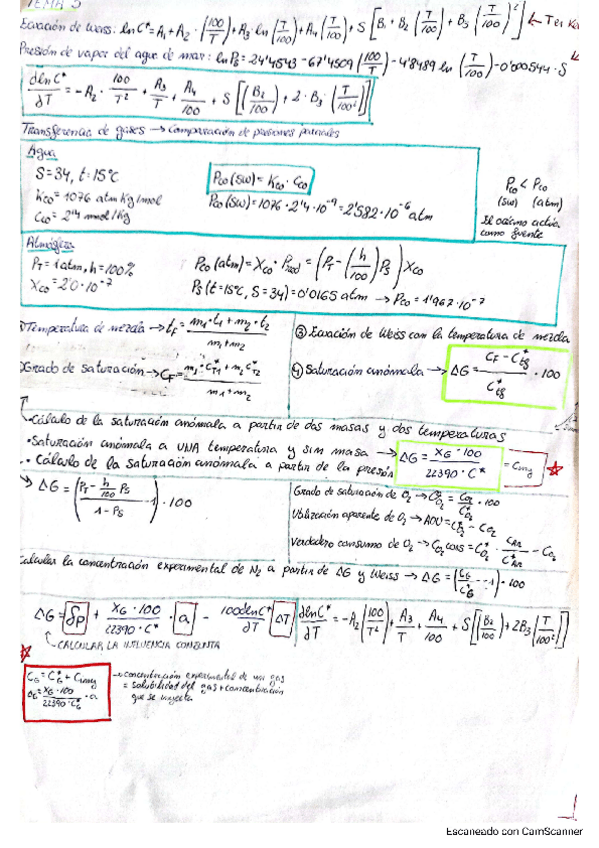 TEMA 5
Ecuación de Weiss: ln C* = A₁ + A₂ · (100/T) + A₃ · ln (T/100) + A₄ (T/100) + S [B₁ + B₂ (T/100) + B₃ (T/100)²] ← T en K
Presión de vapor del agua de mar: ln Ps = 24'4543 - 67'4509 (100/T) - 4'8489 ln (T/100) - 0'000544 · S
dlnC*/dT = -A₂ · 100/T² + A₃/T + A₄/100 + S [(B₂/100) + 2 · B₃ (T/100²)]
Transferencia de gases → Comparación de presiones parciales
Agua
S = 34, t = 15ºC
K_CO = 1076 atm Kg/mol
C_CO = 2'4 nmol/Kg
P_CO (sw) = K_CO · C_CO
P_CO (sw) = 1076 · 2'4 · 10⁻⁹ = 2'582 · 10⁻⁶ atm
P_CO < P_CO
(sw) (atm)
El océano actúa
como fuente
Atmósfera
P_T = 1 atm, h = 100%
X_CO = 2'0 · 10⁻⁷
P_CO (atm) = X_CO · P = (P_T - (h/100) Ps) X_CO
Ps (t = 15ºC, S = 34) = 0'0165 atm → P_CO = 1'967 · 10⁻⁷
① Temperatura de mezcla → t_F = (m₁ · t₁ + m₂ · t₂)/(m₁ + m₂)
② Grado de saturación → C_F = (m₁ · C*_T1 + m₂ C*_T2)/(m₁ + m₂)
③ Ecuación de Weiss con la temperatura de mezcla
④ Saturación anómala → ΔG = (C_F - C*_tF)/C*_tF · 100
· Cálculo de la saturación anómala a partir de dos masas y dos temperaturas
· Saturación anómala a UNA temperatura y sin masa → ΔG = X_G · 100/(22390 · C*) = C_inny ☆
· Cálculo de la saturación anómala a partir de la presión
→ ΔG = ((P_T - h/100 Ps)/(1 - Ps) - 1) · 100
Grado de saturación de O₂ → C_O₂/C*_O₂ · 100
Utilización aparente de O₂ → AOU = C*_O₂ - C_O₂
Verdadero consumo de O₂ → C_O₂ cons = C*_O₂ · C_Ar/C*_Ar - C_O₂
Calcular la concentración experimental de N₂ a partir de ΔG y Weiss → ΔG = (C_G/C*_G - 1) · 100
ΔG = δp + X_G · 100/(22390 · C*) · a - 100dlnC*/dT ΔT
dlnC*/dT = -A₂ (100/T²) + A₃/T + A₄/100 + S [(B₂/100) + 2B₃ (T/100²)]
CALCULAR LA INFLUENCIA CONJUNTA
☆
C_G = C*_G + C_inny
ΔG = X_G · 100/(22390 · C*_G) · a
→ concentración experimental de un gas
= solubilidad del gas + concentración
que se inyecta
Escaneado con CamScanner